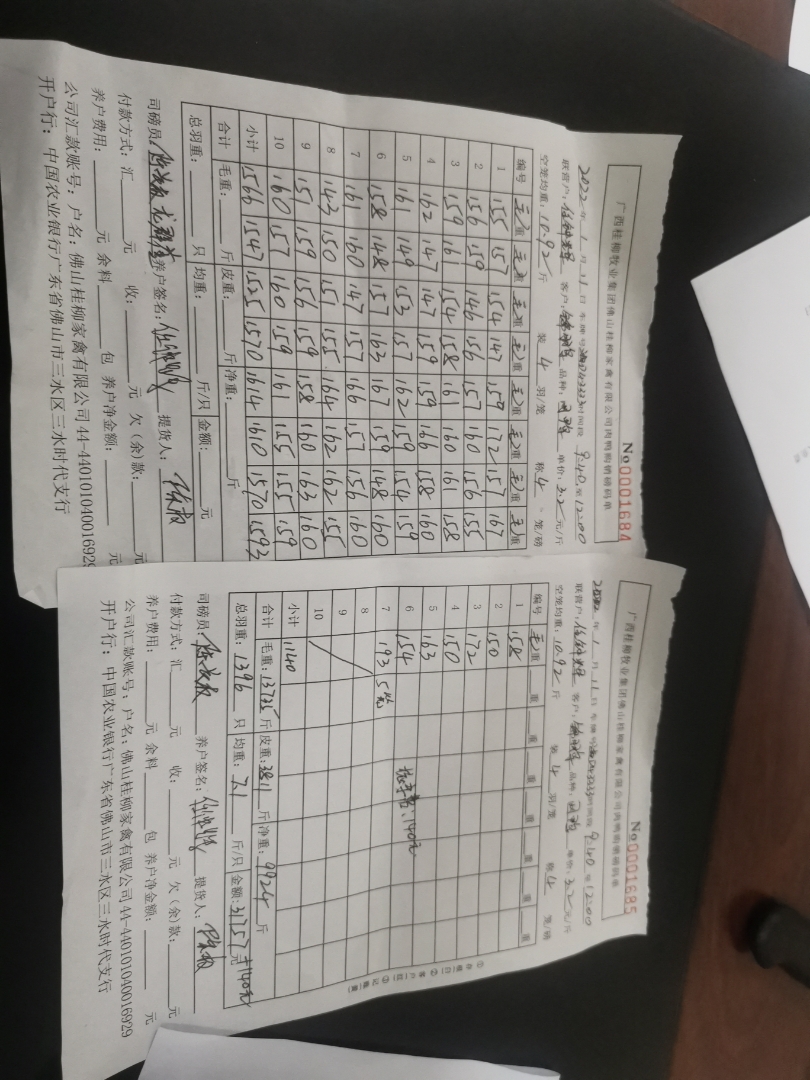 广西桂柳牧业集团佛山桂柳家禽有限公司肉鸭购销磅码单
No 0001684
2022年1月11日 车牌号 时间段 9:40至12:00
联营户: 客户: 品种: 单价:3.2元/斤
空笼均重:10.92斤 装4羽/笼 称4笼/磅
编号 毛重 毛重 毛重 毛重 毛重 毛重 毛重 毛重
1 155 157 154 147 159 172 157 167
2 156 159 146 156 157 160 156 155
3 159 161 154 158 161 160 161 158
4 162 147 147 159 159 166 158 160
5 161 149 153 157 162 159 154 159
6 158 148 157 163 167 159 148 160
7 161 160 147 157 166 157 156 160
8 143 150 151 155 164 162 162 155
9 151 159 156 159 158 160 163 160
10 160 157 160 159 161 155 155 159
小计 1566 1547 1525 1570 1614 1610 1570 1593
合计 毛重: 斤 皮重: 斤 净重: 斤
总羽重: 只 均重: 斤/只 金额: 元
司磅员: 养户签名: 提货人:
付款方式:汇 元 收: 元 欠(余)款: 元
养户费用: 元 余料 包 养户净金额: 元
公司汇款账号:户名:佛山桂柳家禽有限公司 44-440101040016929
开户行:中国农业银行广东省佛山市三水区三水时代支行
广西桂柳牧业集团佛山桂柳家禽有限公司肉鸭购销磅码单
No 0001685
2022年1月11日 车牌号 时间段 9:40至12:00
联营户: 客户: 品种: 单价:3.2元/斤
空笼均重:10.92斤 装4羽/笼 称4笼/磅
编号 毛重 重 重 重 重 重 重 重
1 158
2 150
3 172
4 150
5 163
6 154
7 193 5
8
9
10
小计 1140
140元
合计 毛重:13735斤 皮重:3811斤 净重:9924斤
总羽重:1396只 均重:7.1斤/只 金额:31757元+140元
司磅员: 养户签名: 提货人:
付款方式:汇 元 收: 元 欠(余)款: 元
养户费用: 元 余料 包 养户净金额: 元
公司汇款账号:户名:佛山桂柳家禽有限公司 44-440101040016929
开户行:中国农业银行广东省佛山市三水区三水时代支行